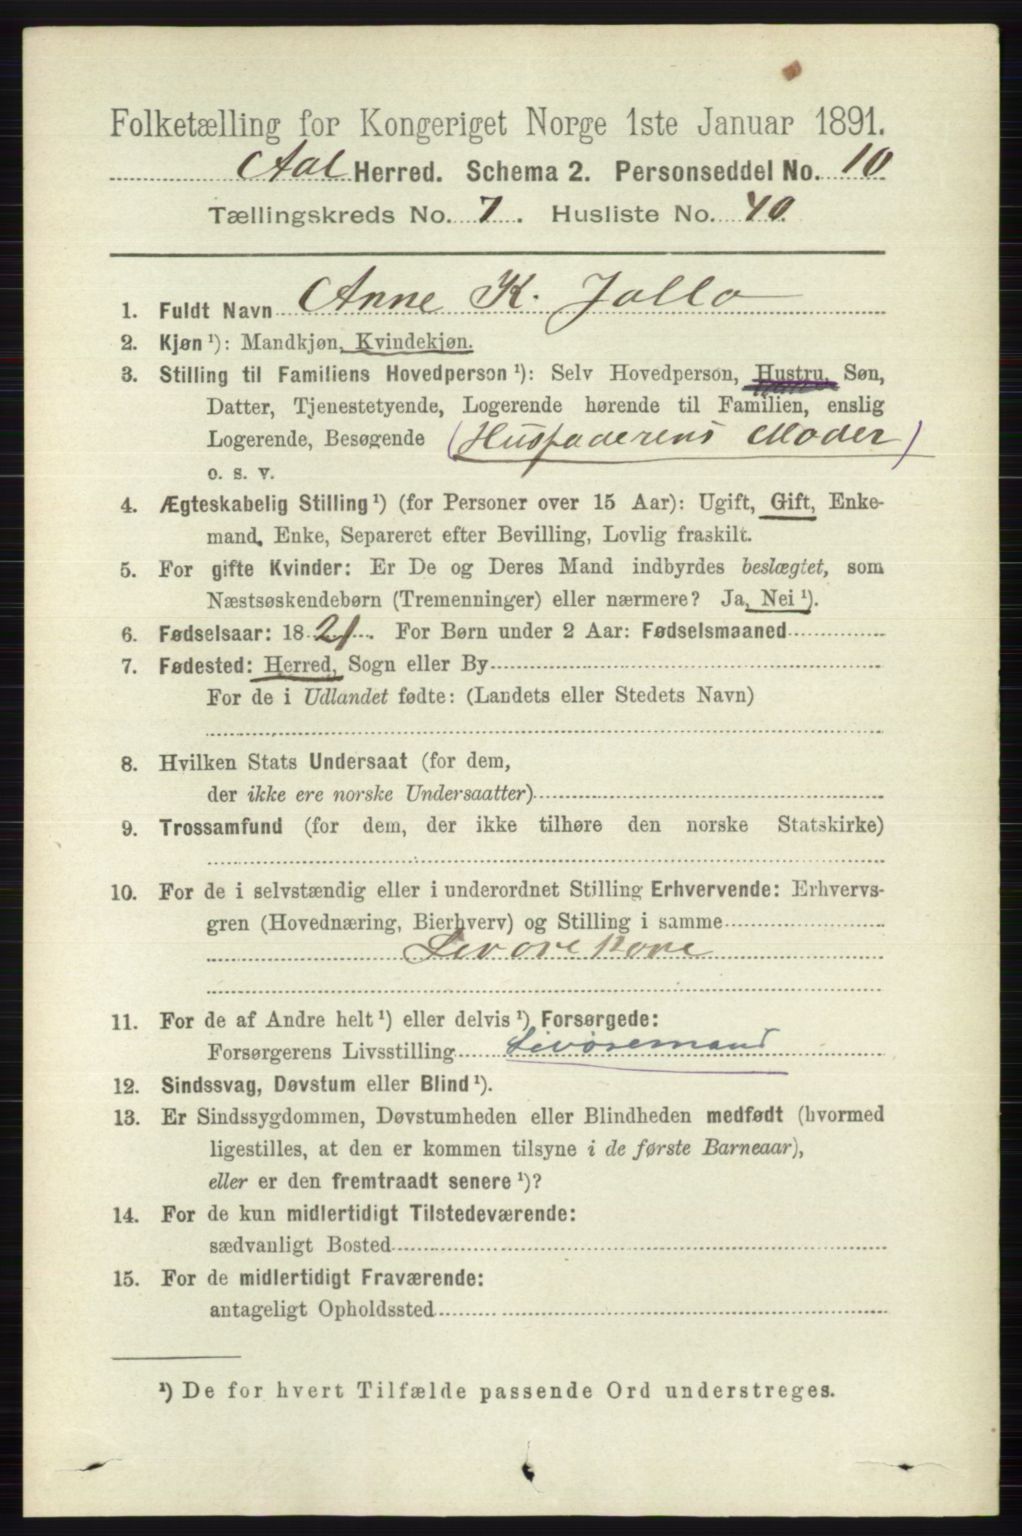 Folketælling for Kongeriget Norge 1ste Januar 1891.
Aal Herred. Schema 2. Personseddel No. 10
Tællingskreds No. 7. Husliste No. 40
1. Fuldt Navn Anne K. Jallo
2. Kjøn ¹): Mandkjøn, Kvindekjøn.
3. Stilling til Familiens Hovedperson ¹): Selv Hovedperson, Hustru, Søn,
Datter, Tjenestetyende, Logerende hørende til Familien, enslig
Logerende, Besøgende (Husfaderens Moder)
o. s. v.
4. Ægteskabelig Stilling ¹) (for Personer over 15 Aar): Ugift, Gift, Enke-
mand, Enke, Separeret efter Bevilling, Lovlig fraskilt.
5. For gifte Kvinder: Er De og Deres Mand indbyrdes beslægtet, som
Næstsøskendebørn (Tremenninger) eller nærmere? Ja, Nei ¹).
6. Fødselsaar: 1821. For Børn under 2 Aar: Fødselsmaaned
7. Fødested: Herred, Sogn eller By
For de i Udlandet fødte: (Landets eller Stedets Navn)
8. Hvilken Stats Undersaat (for dem,
der ikke ere norske Undersaatter)
9. Trossamfund (for dem, der ikke tilhøre den norske Statskirke)
10. For de i selvstændig eller i underordnet Stilling Erhvervende: Erhvervs-
gren (Hovednæring, Bierhverv) og Stilling i samme
Levorekone
11. For de af Andre helt ¹) eller delvis ¹) Forsørgede:
Forsørgerens Livsstilling Livøremand
12. Sindssvag, Døvstum eller Blind ¹).
13. Er Sindssygdommen, Døvstumheden eller Blindheden medfødt (hvormed
ligestilles, at den er kommen tilsyne i de første Barneaar),
eller er den fremtraadt senere ¹)?
14. For de kun midlertidigt Tilstedeværende:
sædvanligt Bosted
15. For de midlertidigt Fraværende:
antageligt Opholdssted
¹) De for hvert Tilfælde passende Ord understreges.